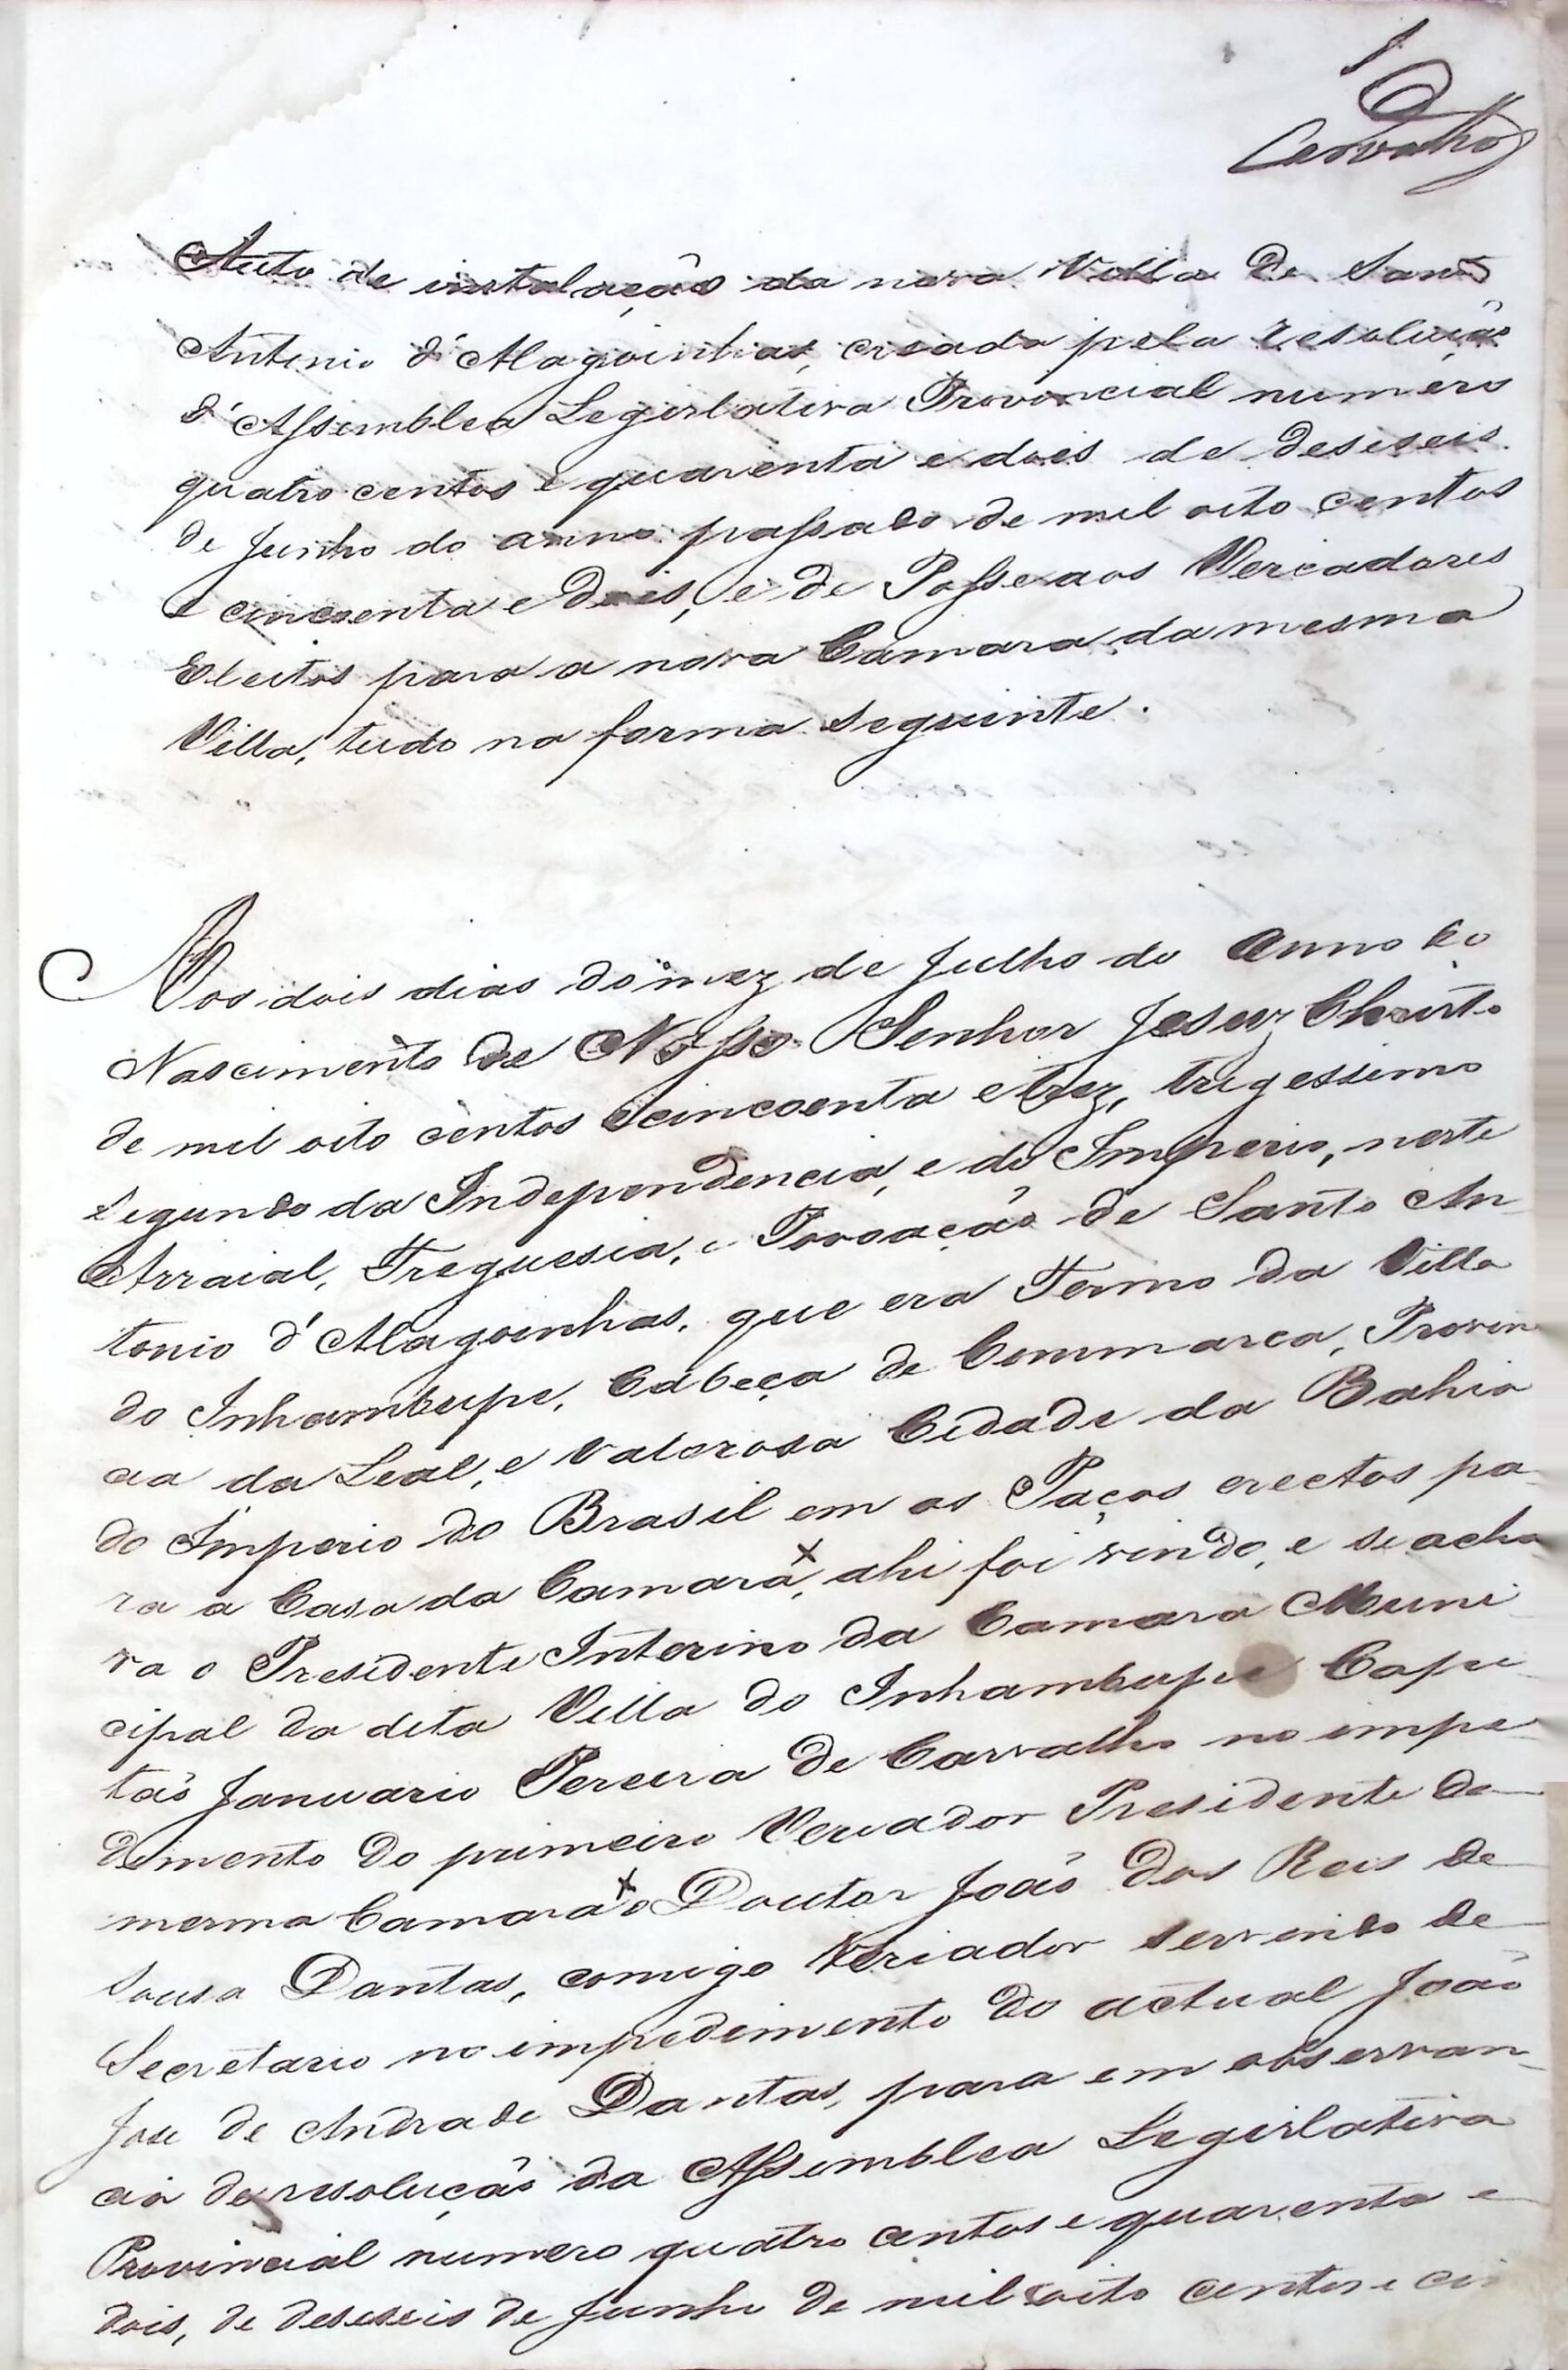 1
Carvalho
Auto de instalação da nova Villa de Santo
Antonio d'Alagoinhas, creada pela resolução
d'Assemblea Legislativa Provincial numero
quatro centos e quarenta e dois de deseseis
de Junho do anno passado de mil oito centos
e cincoenta e dois, e de Posse aos Vereadores
Eleitos para a nova Camara da mesma
Villa, tudo na forma seguinte.
Aos dois dias do mez de Julho do Anno do
Nascimento de Nosso Senhor Jesus Christo
de mil oito centos e cincoenta e trez, trigessimo
segundo da Independencia, e do Imperio, neste
Arraial, Freguesia, e Povoação de Santo An
tonio d'Alagoinhas, que era Termo da Villa
do Inhambupe, Cabeça de Commarca, Provin
cia da Leal, e Valorosa Cidade da Bahia
do Imperio do Brasil em os Paços erectos pa
ra a Casa da Camara, ahi foi vindo, e se acha
va o Presidente Interino da Camara Muni
cipal da dita Villa do Inhambupe Capi
tão Januario Pereira de Carvalho no impe
dimento do primeiro Vereador Presidente da
mesma Camara o Doutor João dos Reis de
Sousa Dantas, comigo Veriador servindo de
Secretario no impedimento do actual João
Jose de Andrade Dantas, para em observan
cia da resolução da Assemblea Legislativa
Provincial numero quatro centos e quarenta e
dois, de deseseis de Junho de mil oito centos e cin